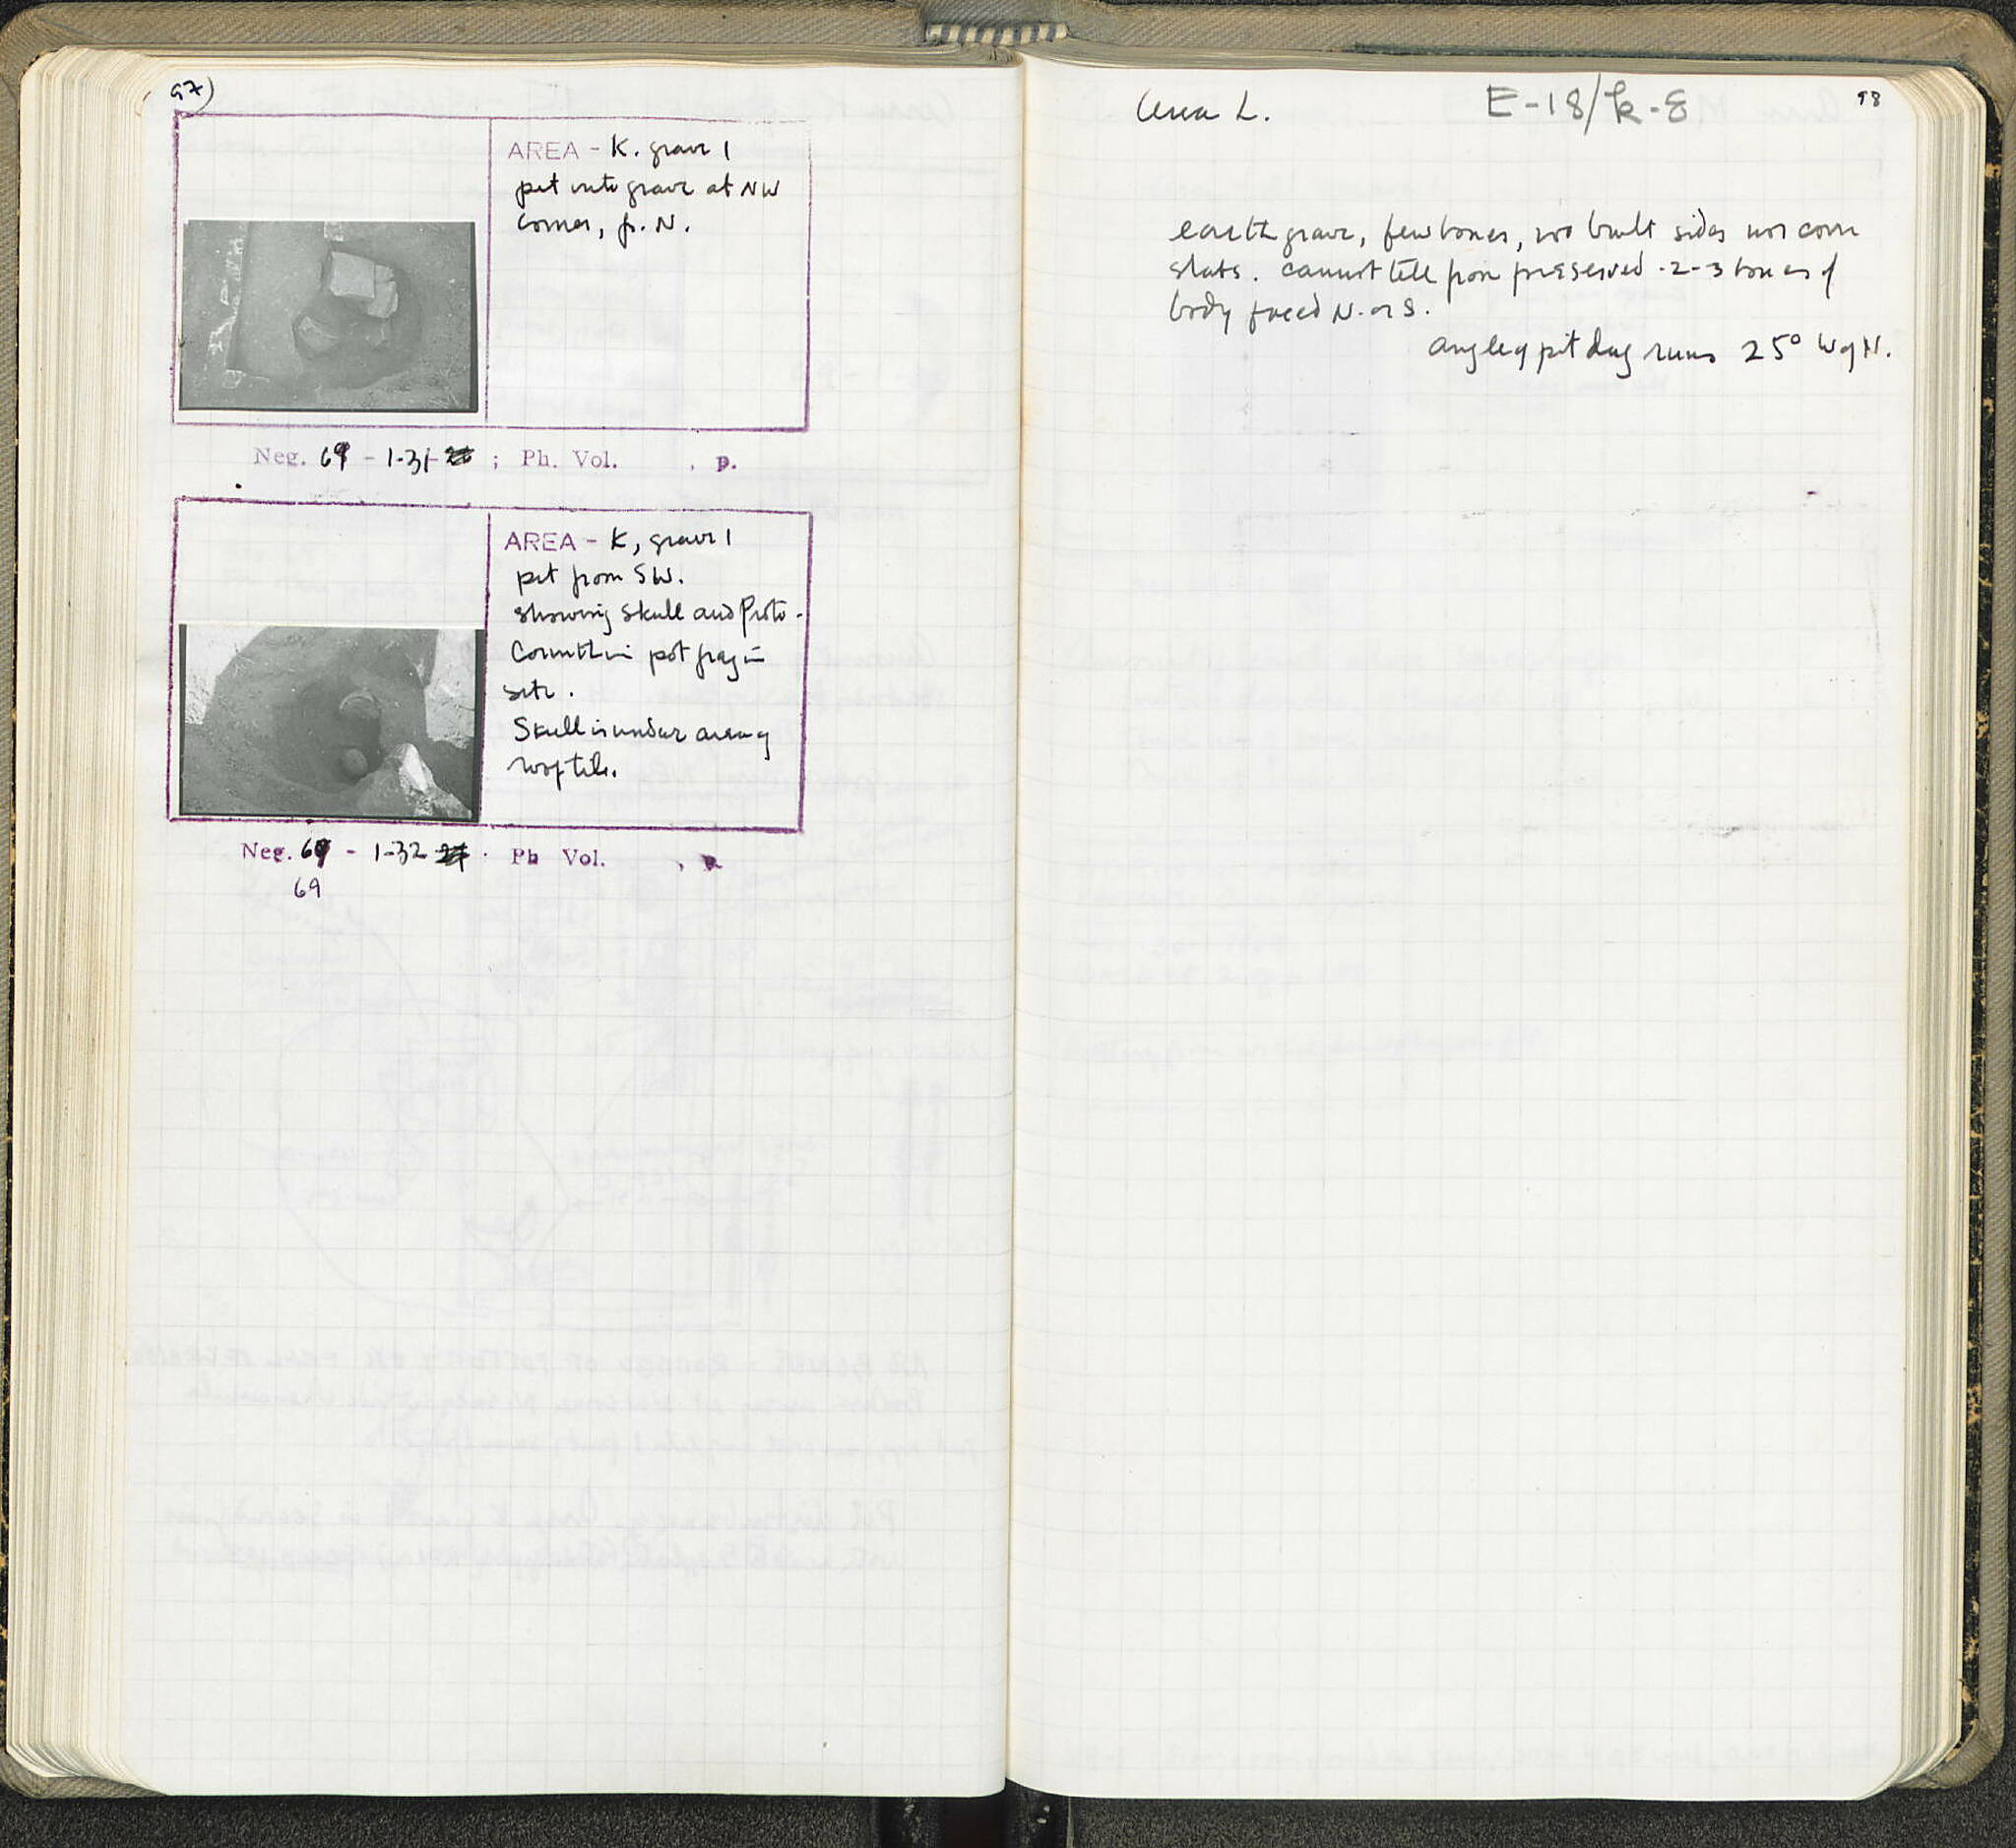 97)
AREA - K. grave 1
pit into grave at NW
corner, fr. N.
Neg. 69 - 1-31 ; Ph. Vol. , p.
AREA - K, grave 1
pit from SW.
showing skull and Proto-
Corinthian pot frag in
situ.
Skull is under area of
roof tile.
Neg. 69 - 1-32 . Ph Vol. , p.
69
Area L.
E-18/k-8
98
earth grave, few bones, no built sides nor cover
slabs. cannot tell from preserved 2-3 bones if
body faced N. or S.
angle of pit dug runs 25° W of N.